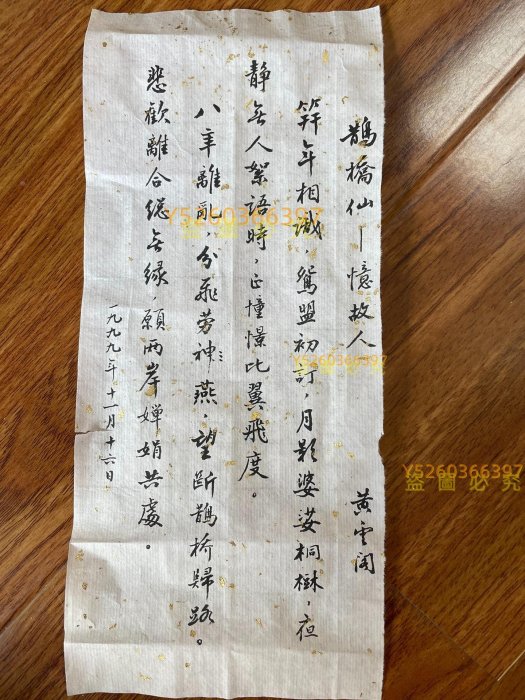 鵲橋仙—憶故人 黄雲
笄年相識，鴛盟初訂，月影婆娑桐樹，夜
静無人絮語時，正憧憬比翼飛度。
八年離亂，分飛勞神燕，望斷鵲橋歸路。
悲歡離合總無緣，願两岸嬋娟共處。
一九九九年十一月十六日
Y5260366397
Y5260366397
Y5260366397
盜圖必究